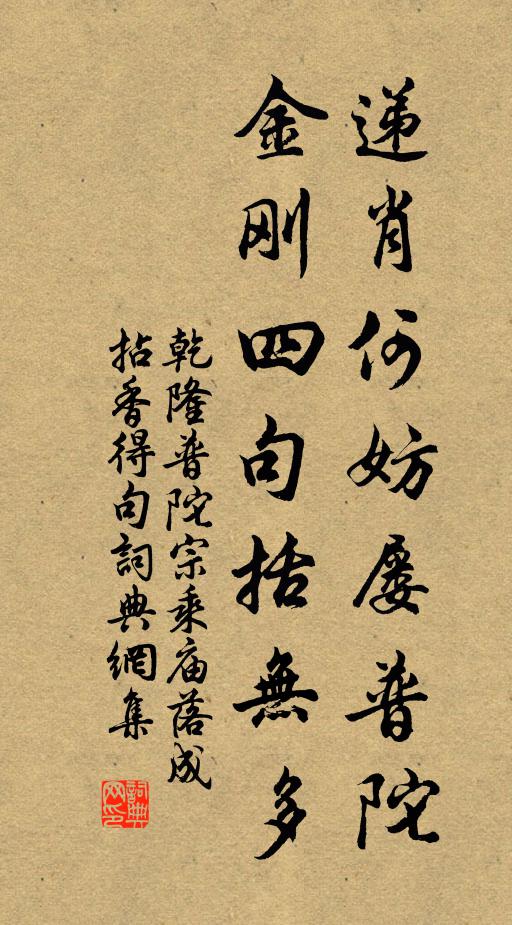 递肖何妨屡普陀
金刚四句括無多
乾隆普陀宗乘庙落成
拈香得句詞典網集
詞典网印